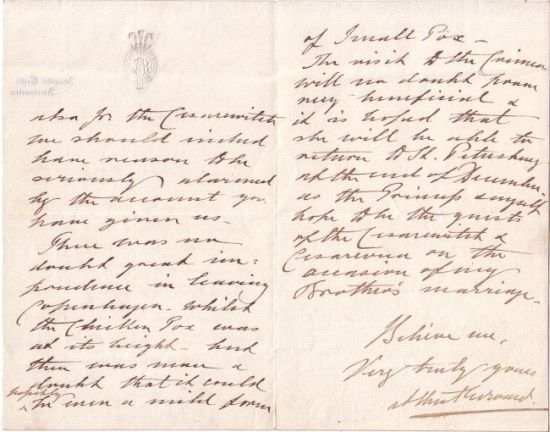 also for the Cesarewitch
we should indeed
have reason to be
seriously alarmed
by the account you
have given us –
There was no
doubt great im=
prudence in leaving
Copenhagen whilst
the Chicken Pox was
at its height – and
there was never a
doubt that it could
possibly be even a mild form
of Small Pox –
The visit to the Crimea
will no doubt prove
very beneficial &
it is hoped that
she will be able to
return to St. Petersburg
at the end of December.
as the Princess & myself
hope to be the guests
of the Cesarewitch &
Cesarevna on the
occasion of my
Brother's marriage –
Believe me,
Very truly yours
Albert Edward